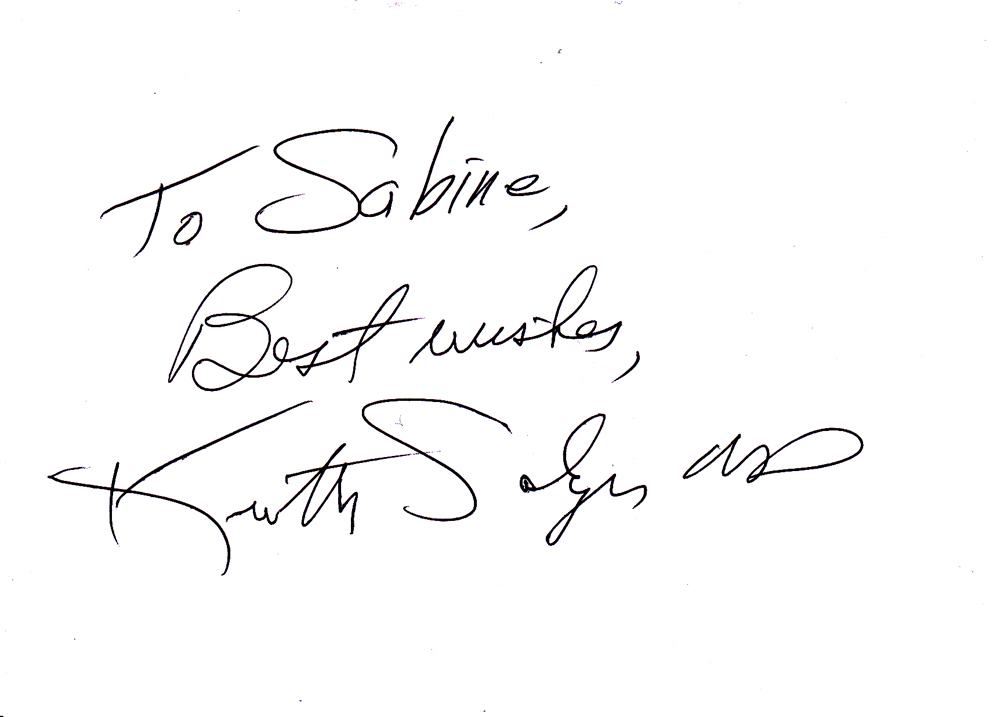 To Sabine,
Best wishes,
Keith